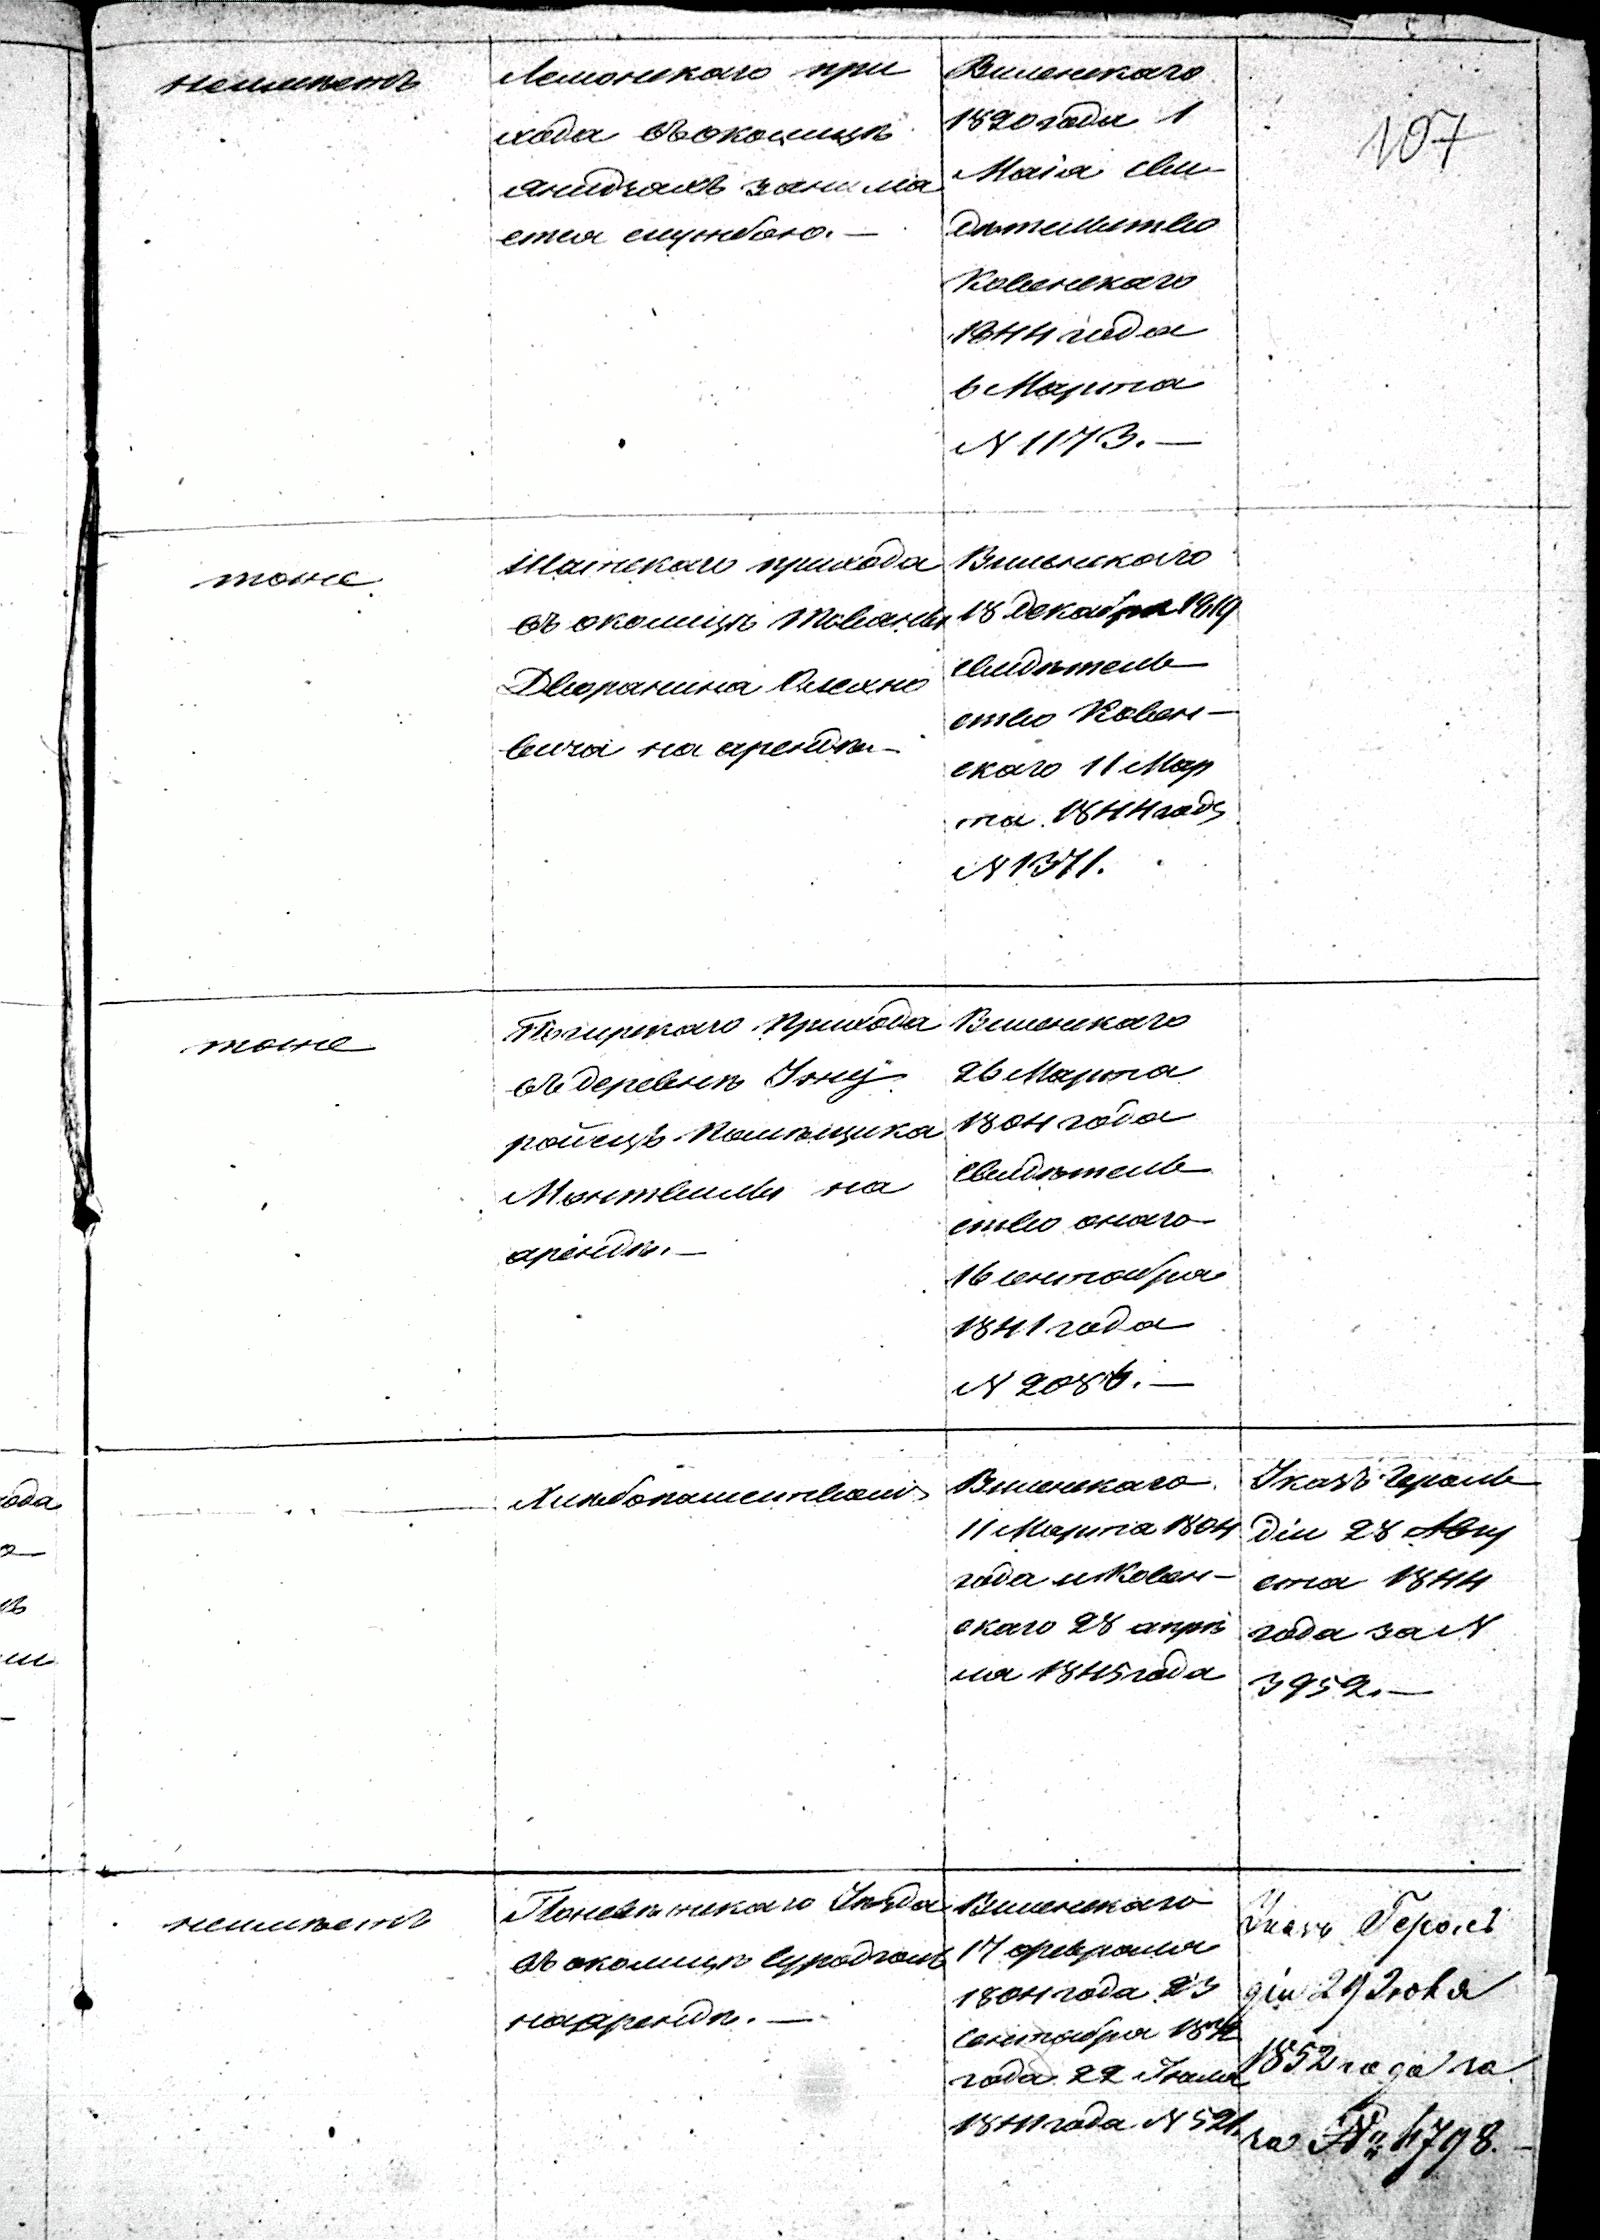 107
неимѣетъ
Лемонскаго при
хода въ околицѣ
занима
ется службою. —
Виленскаго
1820 года 1
Маія сви-
дѣтельство
Ковенскаго
1844 года
6 Марта
N 1173. —
тоже
Шатскаго прихода
въ околицѣ
Дворянина Олехно
вича на арендѣ —
Виленскаго
18 декабря 1819
свидѣтель
ство Ковен-
скаго 11 Мар
та 1844 года
N 1371.
тоже
Погирскаго прихода
въ деревнѣ Уну
помѣщика
Монтвиллы на
арендѣ. —
Виленскаго
26 Марта
1804 года
свидѣтель
ство онаго
16 сентября
1841 года
N 2086. —
Хлѣбопашествомъ
Виленскаго
11 Марта 1804
года и Ковен-
скаго 28 апрѣ
ля 1845 года
Указъ Героль
діи 28 Авгу
ста 1844
года за N
3952. —
неимѣетъ
Поневѣжскаго Уѣзда
въ околицѣ
на арендѣ. —
Виленскаго
17 февраля
1804 года 23
сентября
года 22 Іюля
1841 года N 521.
Указъ Героль
діи 29 Іюля
1852 года за
за № 4798. —
ода